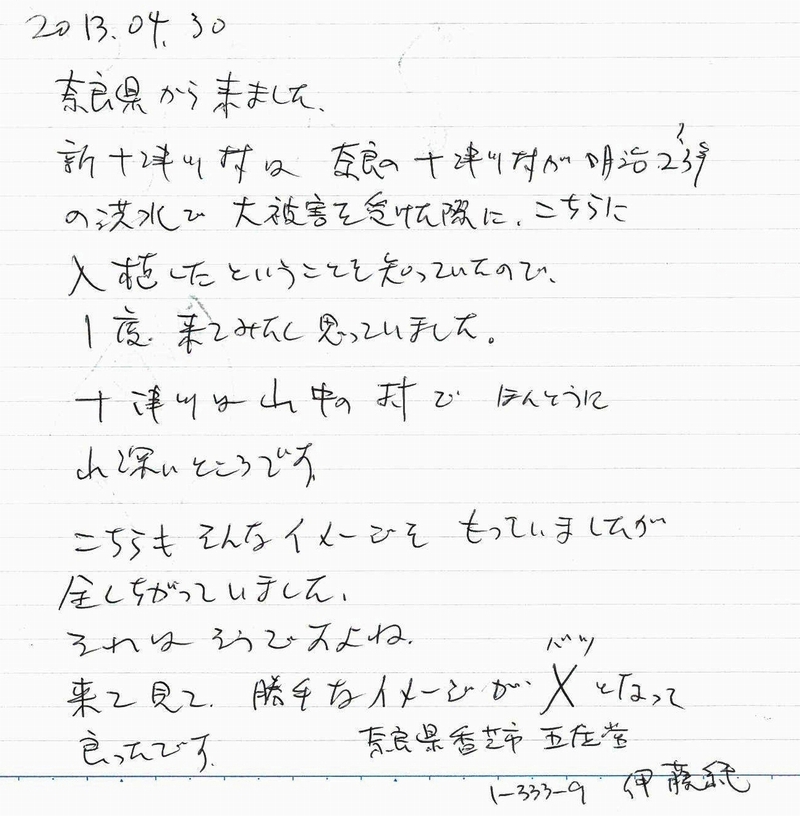 2013.04.30
奈良県から来ました、
新十津川村は 奈良の十津川村が明治23年?
の洪水で 大被害を受けた際に、こちらに
入植したということを知っていたので、
1度、来てみたく思っていました。
十津川は山中の村で ほんとうに
山深いところです。
こちらも そんなイメージを もっていましたが
全しちがっていました、
それは そうですよね、
バツ
来て見て、勝手なイメージが、Xとなって
良ったです。
奈良県香芝市 五位堂
1-333-9 伊藤純